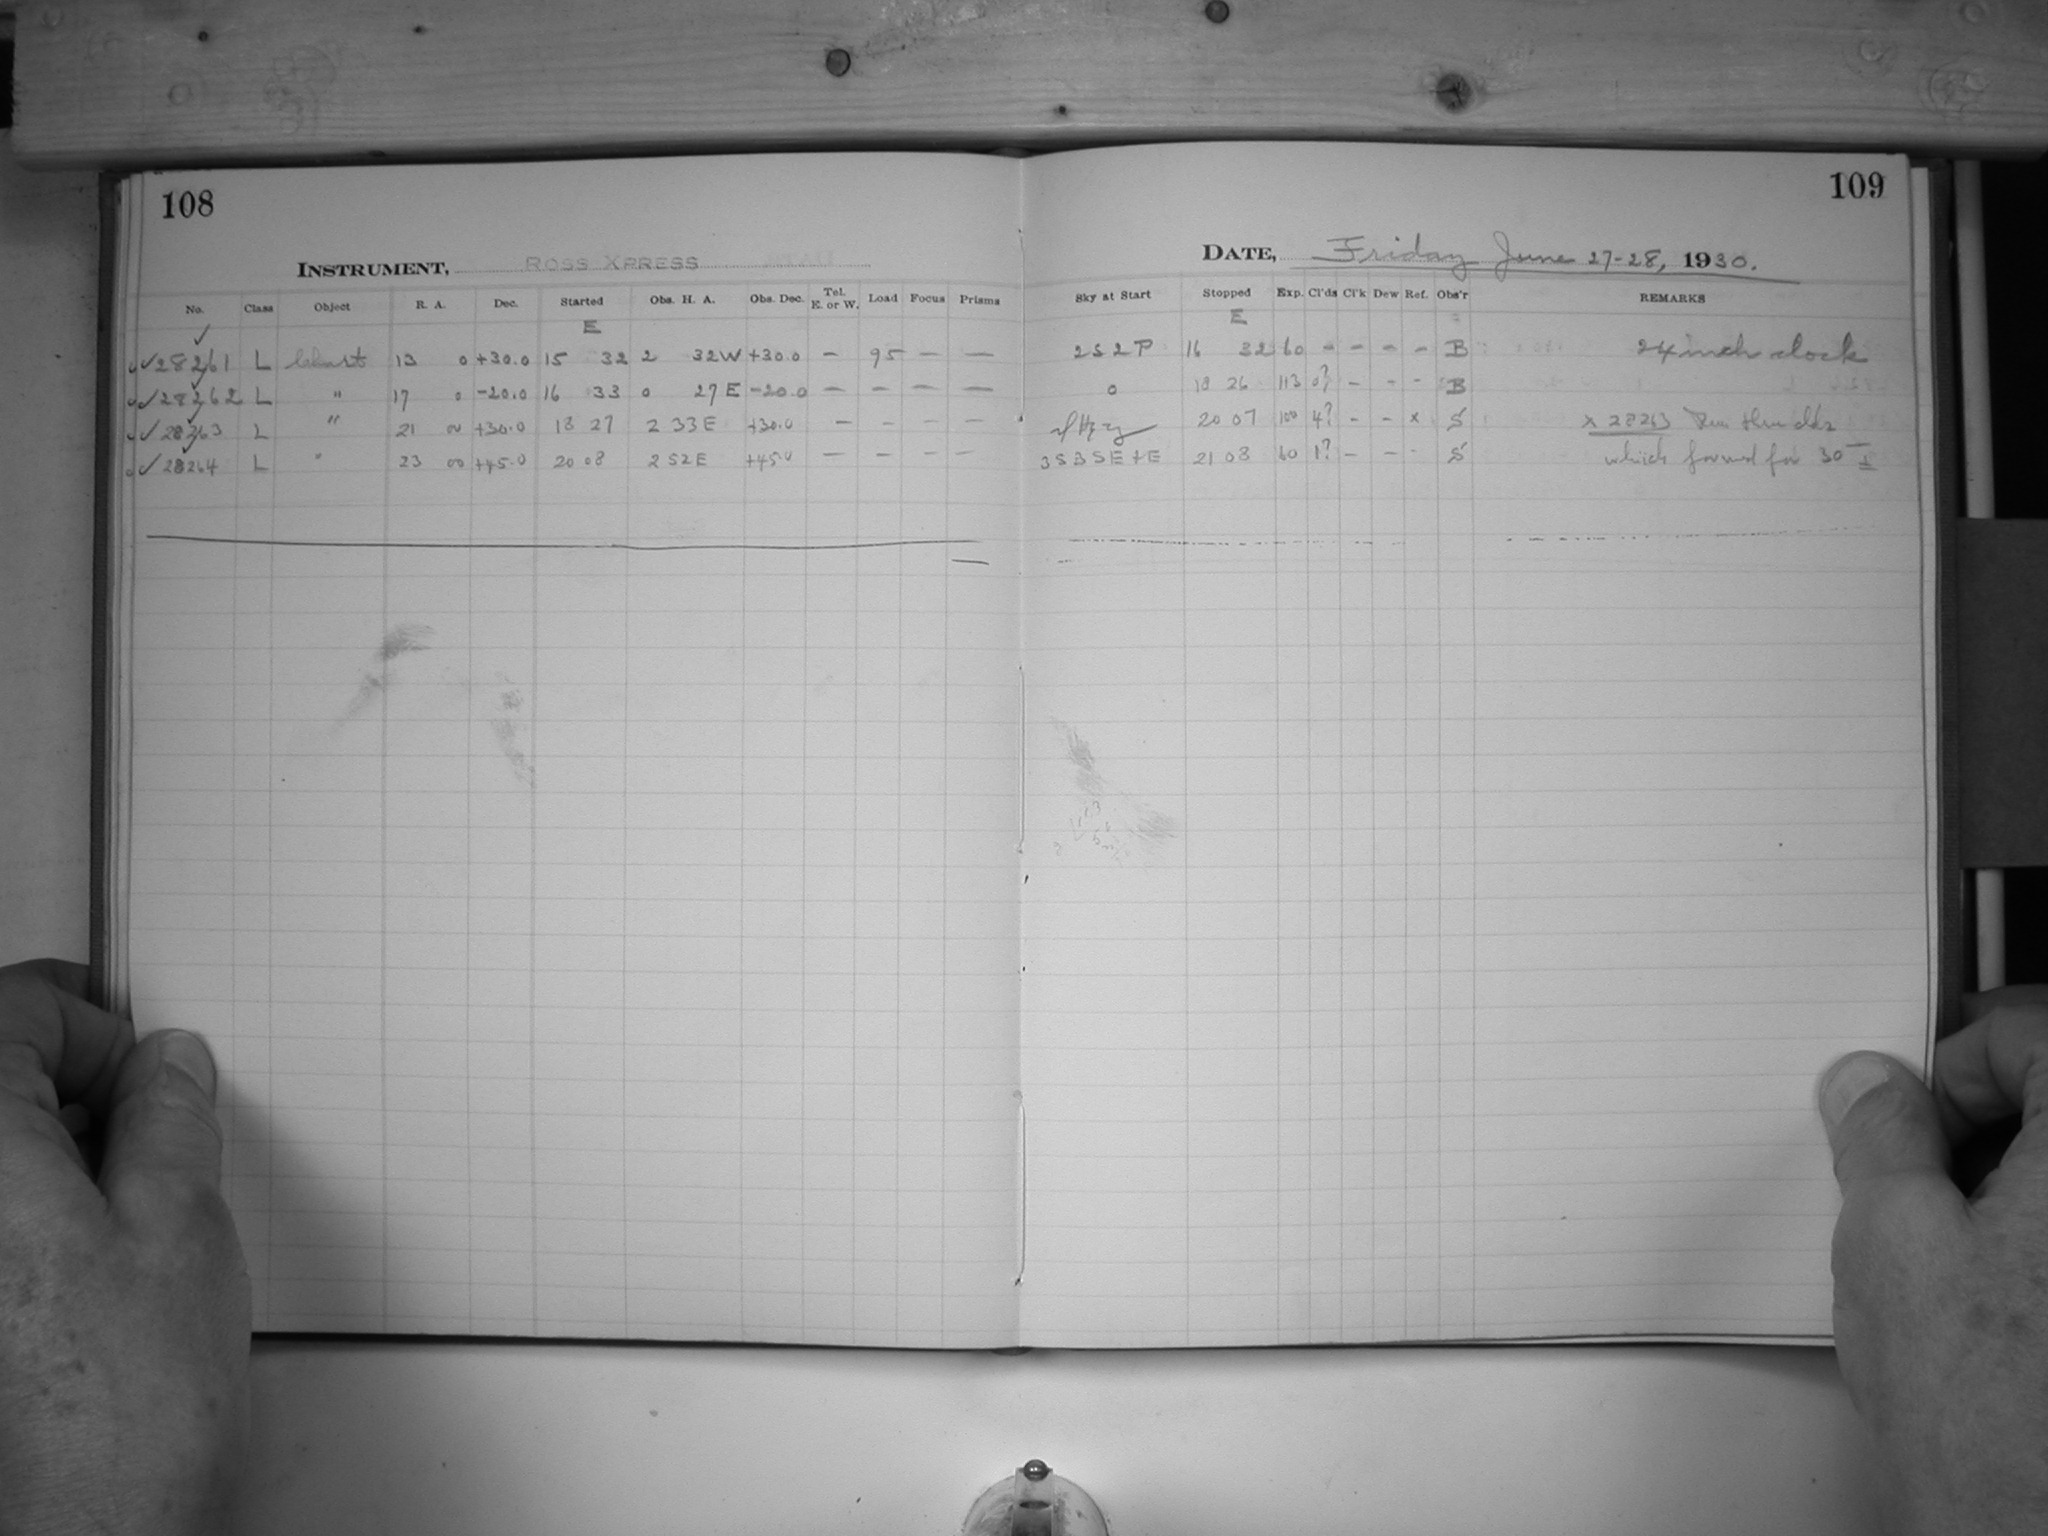 108
109
INSTRUMENT, ROSS XPRESS
DATE, Friday June 27-28, 1930.
No. Class Object R. A. Dec. Started Obs. H. A. Obs. Dec. Tel. E. or W. Load Focus Prisms Sky at Start Stopped Exp. Cl'ds Cl'k Dew Ref. Obs'r REMARKS
E E
✓28261 L 13 0 +30.0 15 32 2 32W +30.0 – 95 – – 2S2P 16 32 60 – – – – B 24 inch clock
✓28262 L " 17 0 -20.0 16 33 0 27E -20.0 – – – – 0 18 26 113 0? – – – B
✓28263 L " 21 00 +30.0 18 27 2 33E +30.0 – – – – 20 07 100 4? – – x S x 28263 thru clds
✓28264 L " 23 00 +45.0 20 08 2 52E +45.0 – – – – 3S3SE+E 21 08 60 1? – – – S which formed for 30 ±